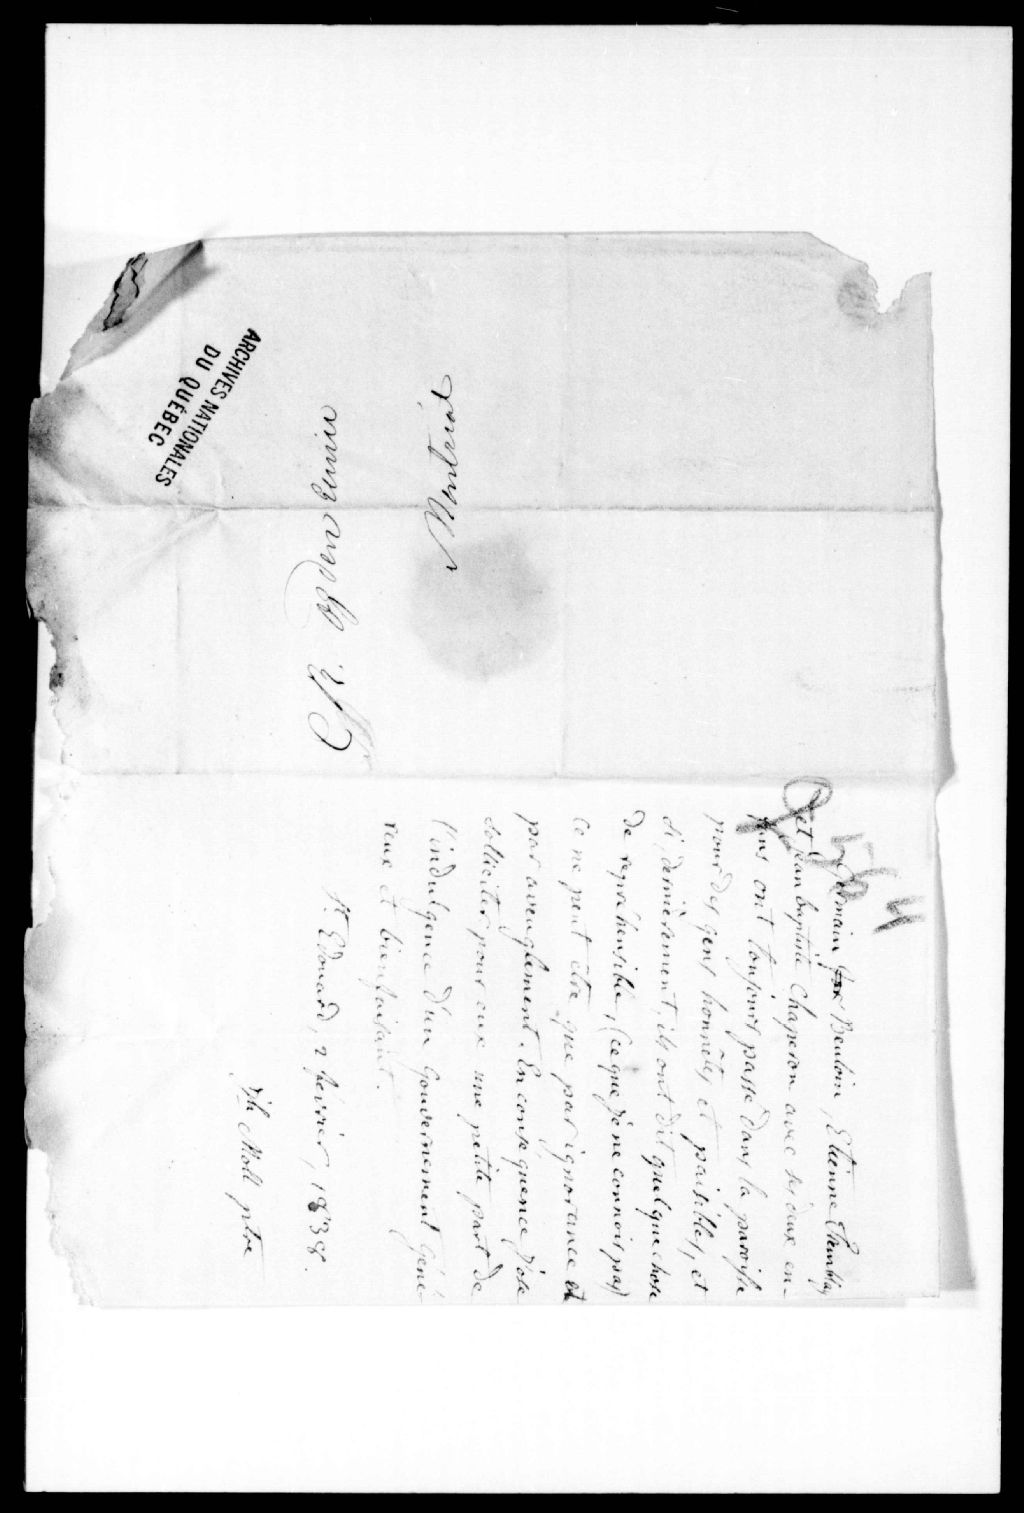 564
Germain Beuloin, Etienne Tremblay
et Jean baptiste Chaperon avec ses deux en-
fans ont toujours passé dans la paroisse
pour des gens honnêtes et paisibles, et
si, dernièrement, ils ont dit quelque chose
de repréhensible, (ce que je ne connois pas)
ce ne peut être que par ignorance et
par aveuglement. En conséquence j'ose
solliciter pour eux une petite part de
l'indulgence d'un Gouvernement géné-
reux et bienfaisant.
St Edouard, 2 février, 1838.
Jh Moll ptre
Montréal
ARCHIVES NATIONALES
DU QUÉBEC